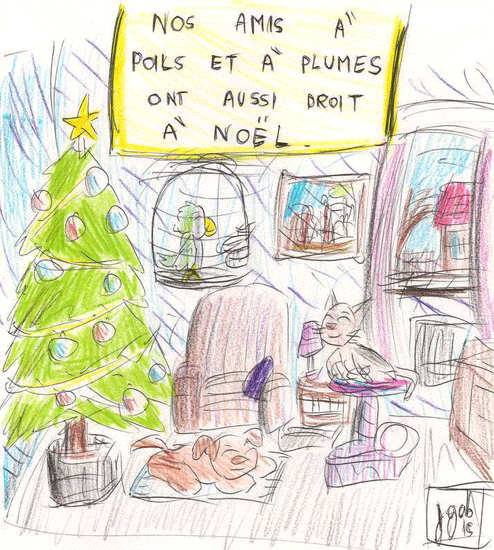 NOS AMIS À
POILS ET À PLUMES
ONT AUSSI DROIT
À NOËL.